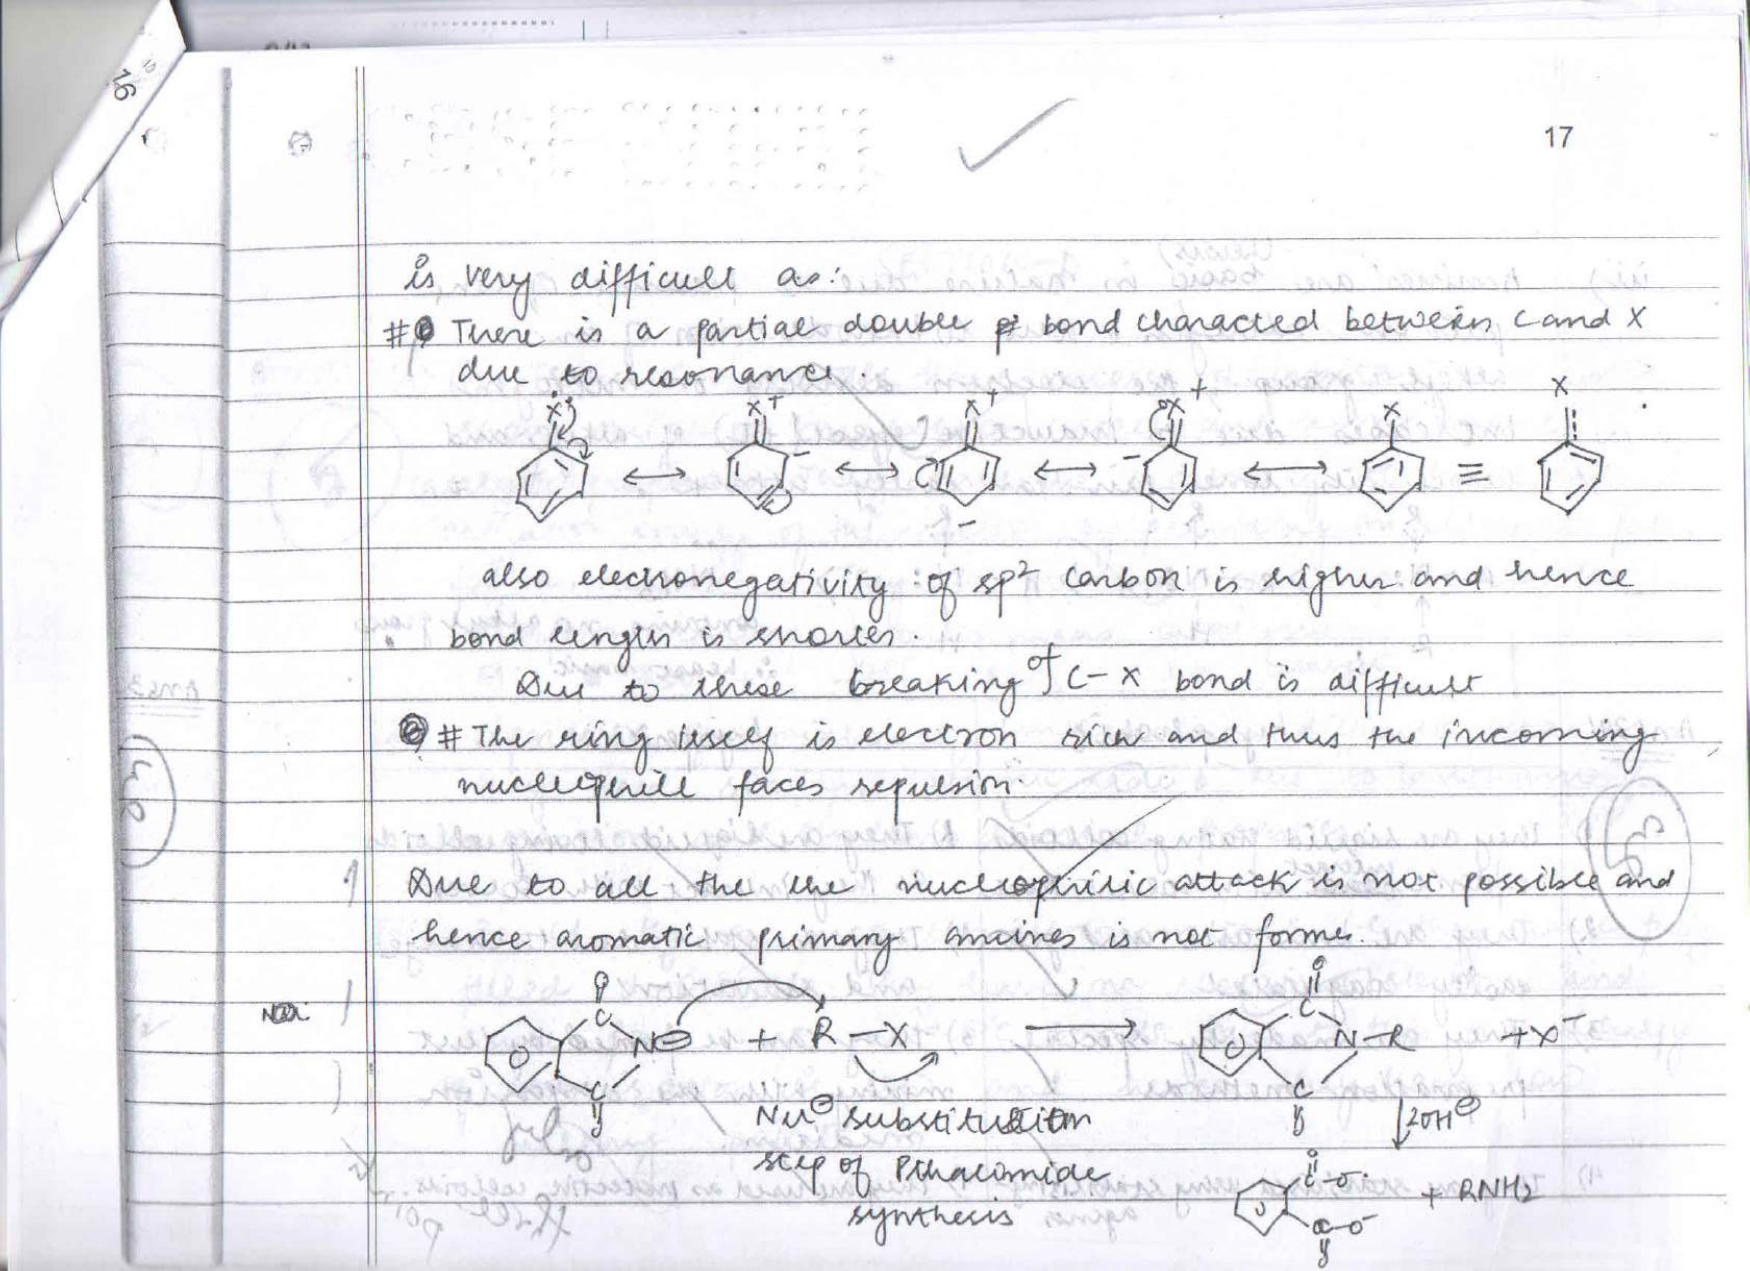 16
17
is very difficult as:
# There is a partial double bond characted between C and X
due to resonance.
X X+ X+ X+ X X
≡
also electronegativity of sp² carbon is higher and hence
bond length is shorter.
Due to these breaking of C-X bond is difficult
# The ring itself is electron rich and thus the incoming
nucleophile faces repulsion.
Due to all the the nucleophilic attack is not possible and
hence aromatic primary amines is not forme.
O O
C C
N⊖ + R-X → N-R + X⁻
C C
O O
Nu⊖ substitution ↓2OH⊖
step of Pthalamide
O
C-O⁻ + RNH2
synthesis
C-O⁻
O